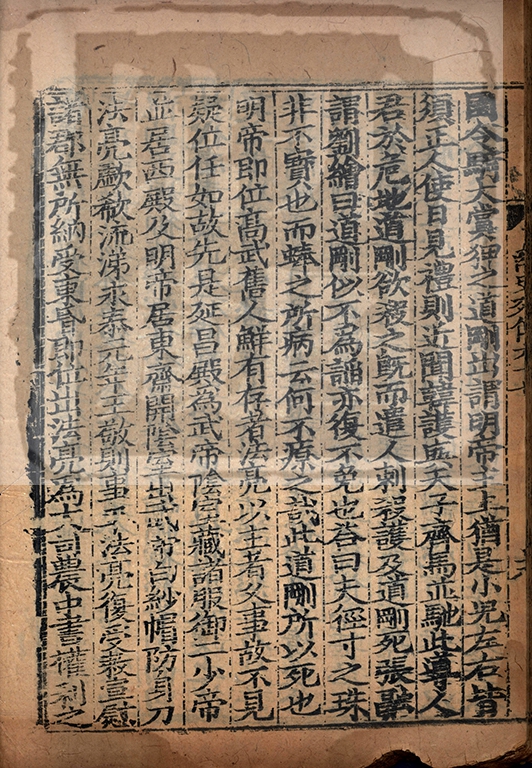 因令騎大賞狎之道剛出謂明帝主上猶是小兒左右皆
須正人使日見禮則近聞韓護與天子齊馬並馳此導人
君於危地道剛欲殺之既而遣人刺殺護及道剛死張融
謂劉繪曰道剛似不為諂亦復不免也荅曰夫徑寸之珠
非不寶也而蜯之所病云何不療之哉此道剛所以死也
明帝即位高武舊人鮮有存者法亮以主者久事故不見
疑位任如故先是延昌殿為武帝陰室藏諸服御二少帝
並居西殿及明帝居東齋開陰室出武帝白紗帽防身刀
法亮歔欷流涕永泰元年王敬則事平法亮復受敕宣慰
諸郡無所納受東昏即位出法亮為大司農中書權利之